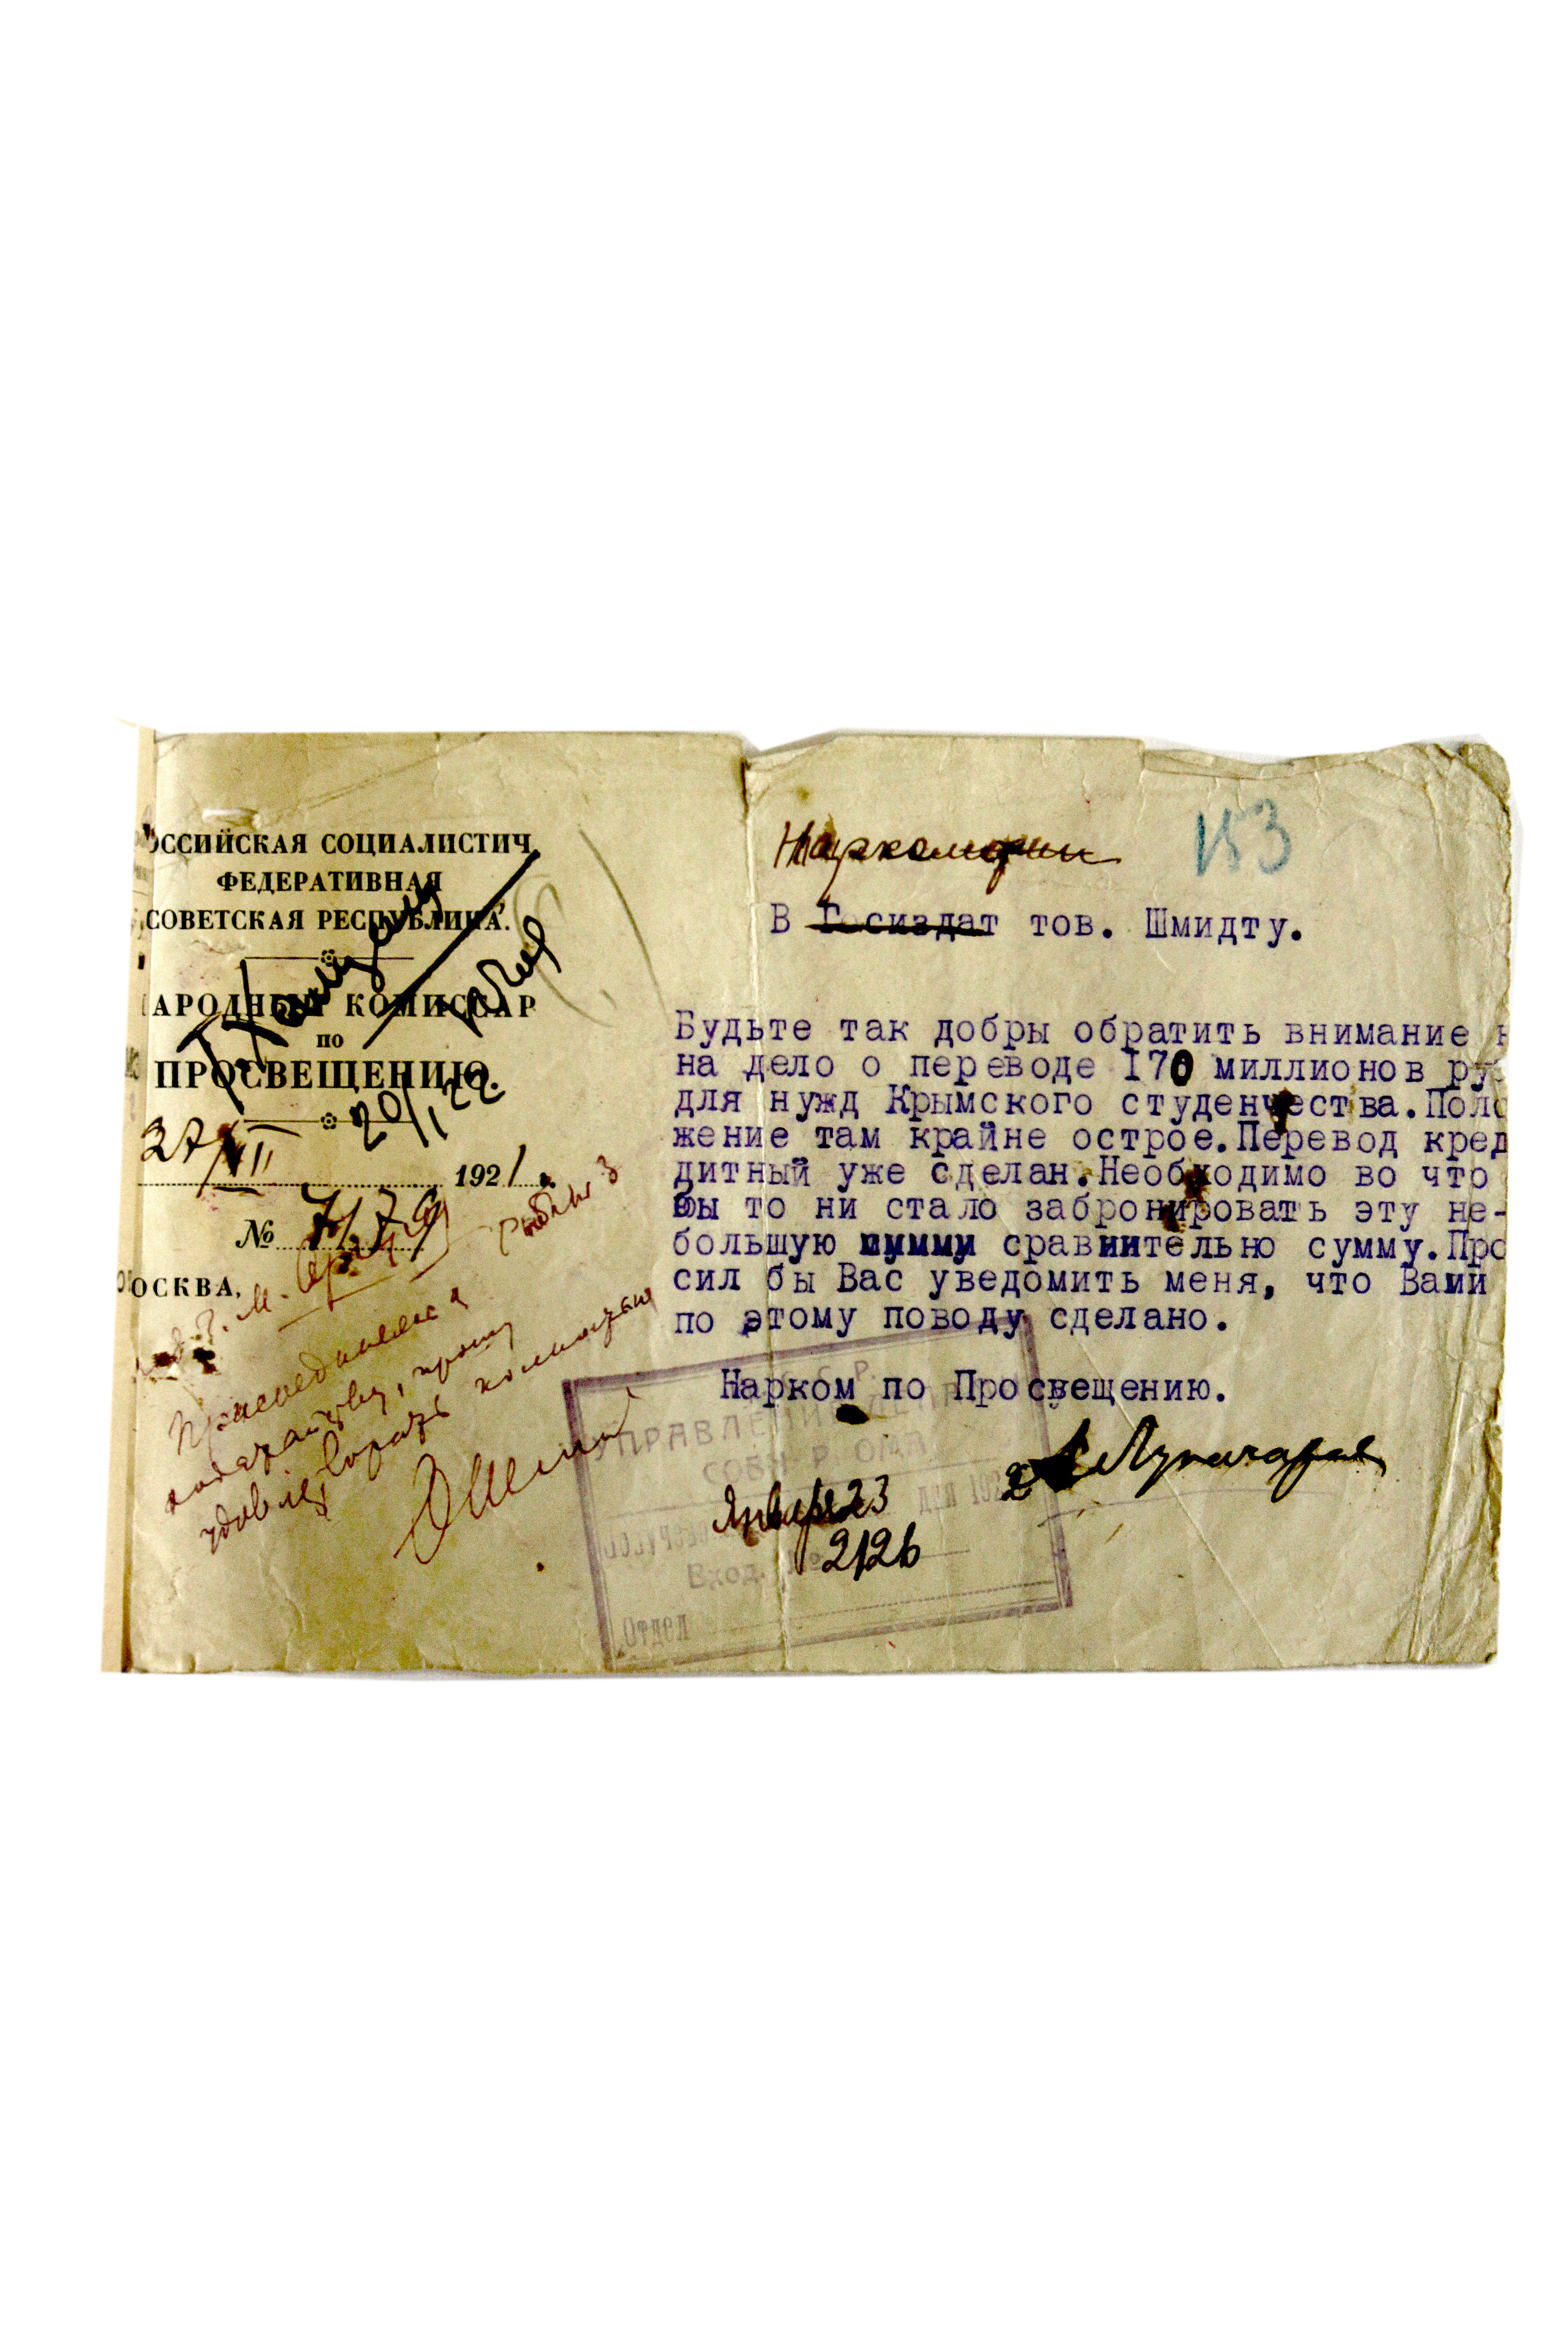 ОССИЙСКАЯ СОЦИАЛИСТИЧ.
ФЕДЕРАТИВНАЯ
СОВЕТСКАЯ РЕСПУБЛИКА.
АРОДНЫЙ КОМИССАР
ПО
ПРОСВЕЩЕНИЮ.
20/I 22
27/XII 1921
№ 7179
ОСКВА,
Присоединяясь к
ходатайству, прошу
удовлетворить
ОШмидт
153
Наркомфин
В Госиздат тов. Шмидту.
Будьте так добры обратить внимание н
на дело о переводе 170 миллионов ру
для нужд Крымского студенчества.Поло
жение там крайне острое.Перевод кред
дитный уже сделан.Необходимо во что
бы то ни стало забронировать эту не-
большую сравнительно сумму.Про
сил бы Вас уведомить меня, что Вами
по этому поводу сделано.
Нарком по Просвещению.
А Луначарский
С.Р.
УПРАВЛЕНИЕ ДЕЛ
Января 23 дня 192 2
Вход. № 2126
Отдел